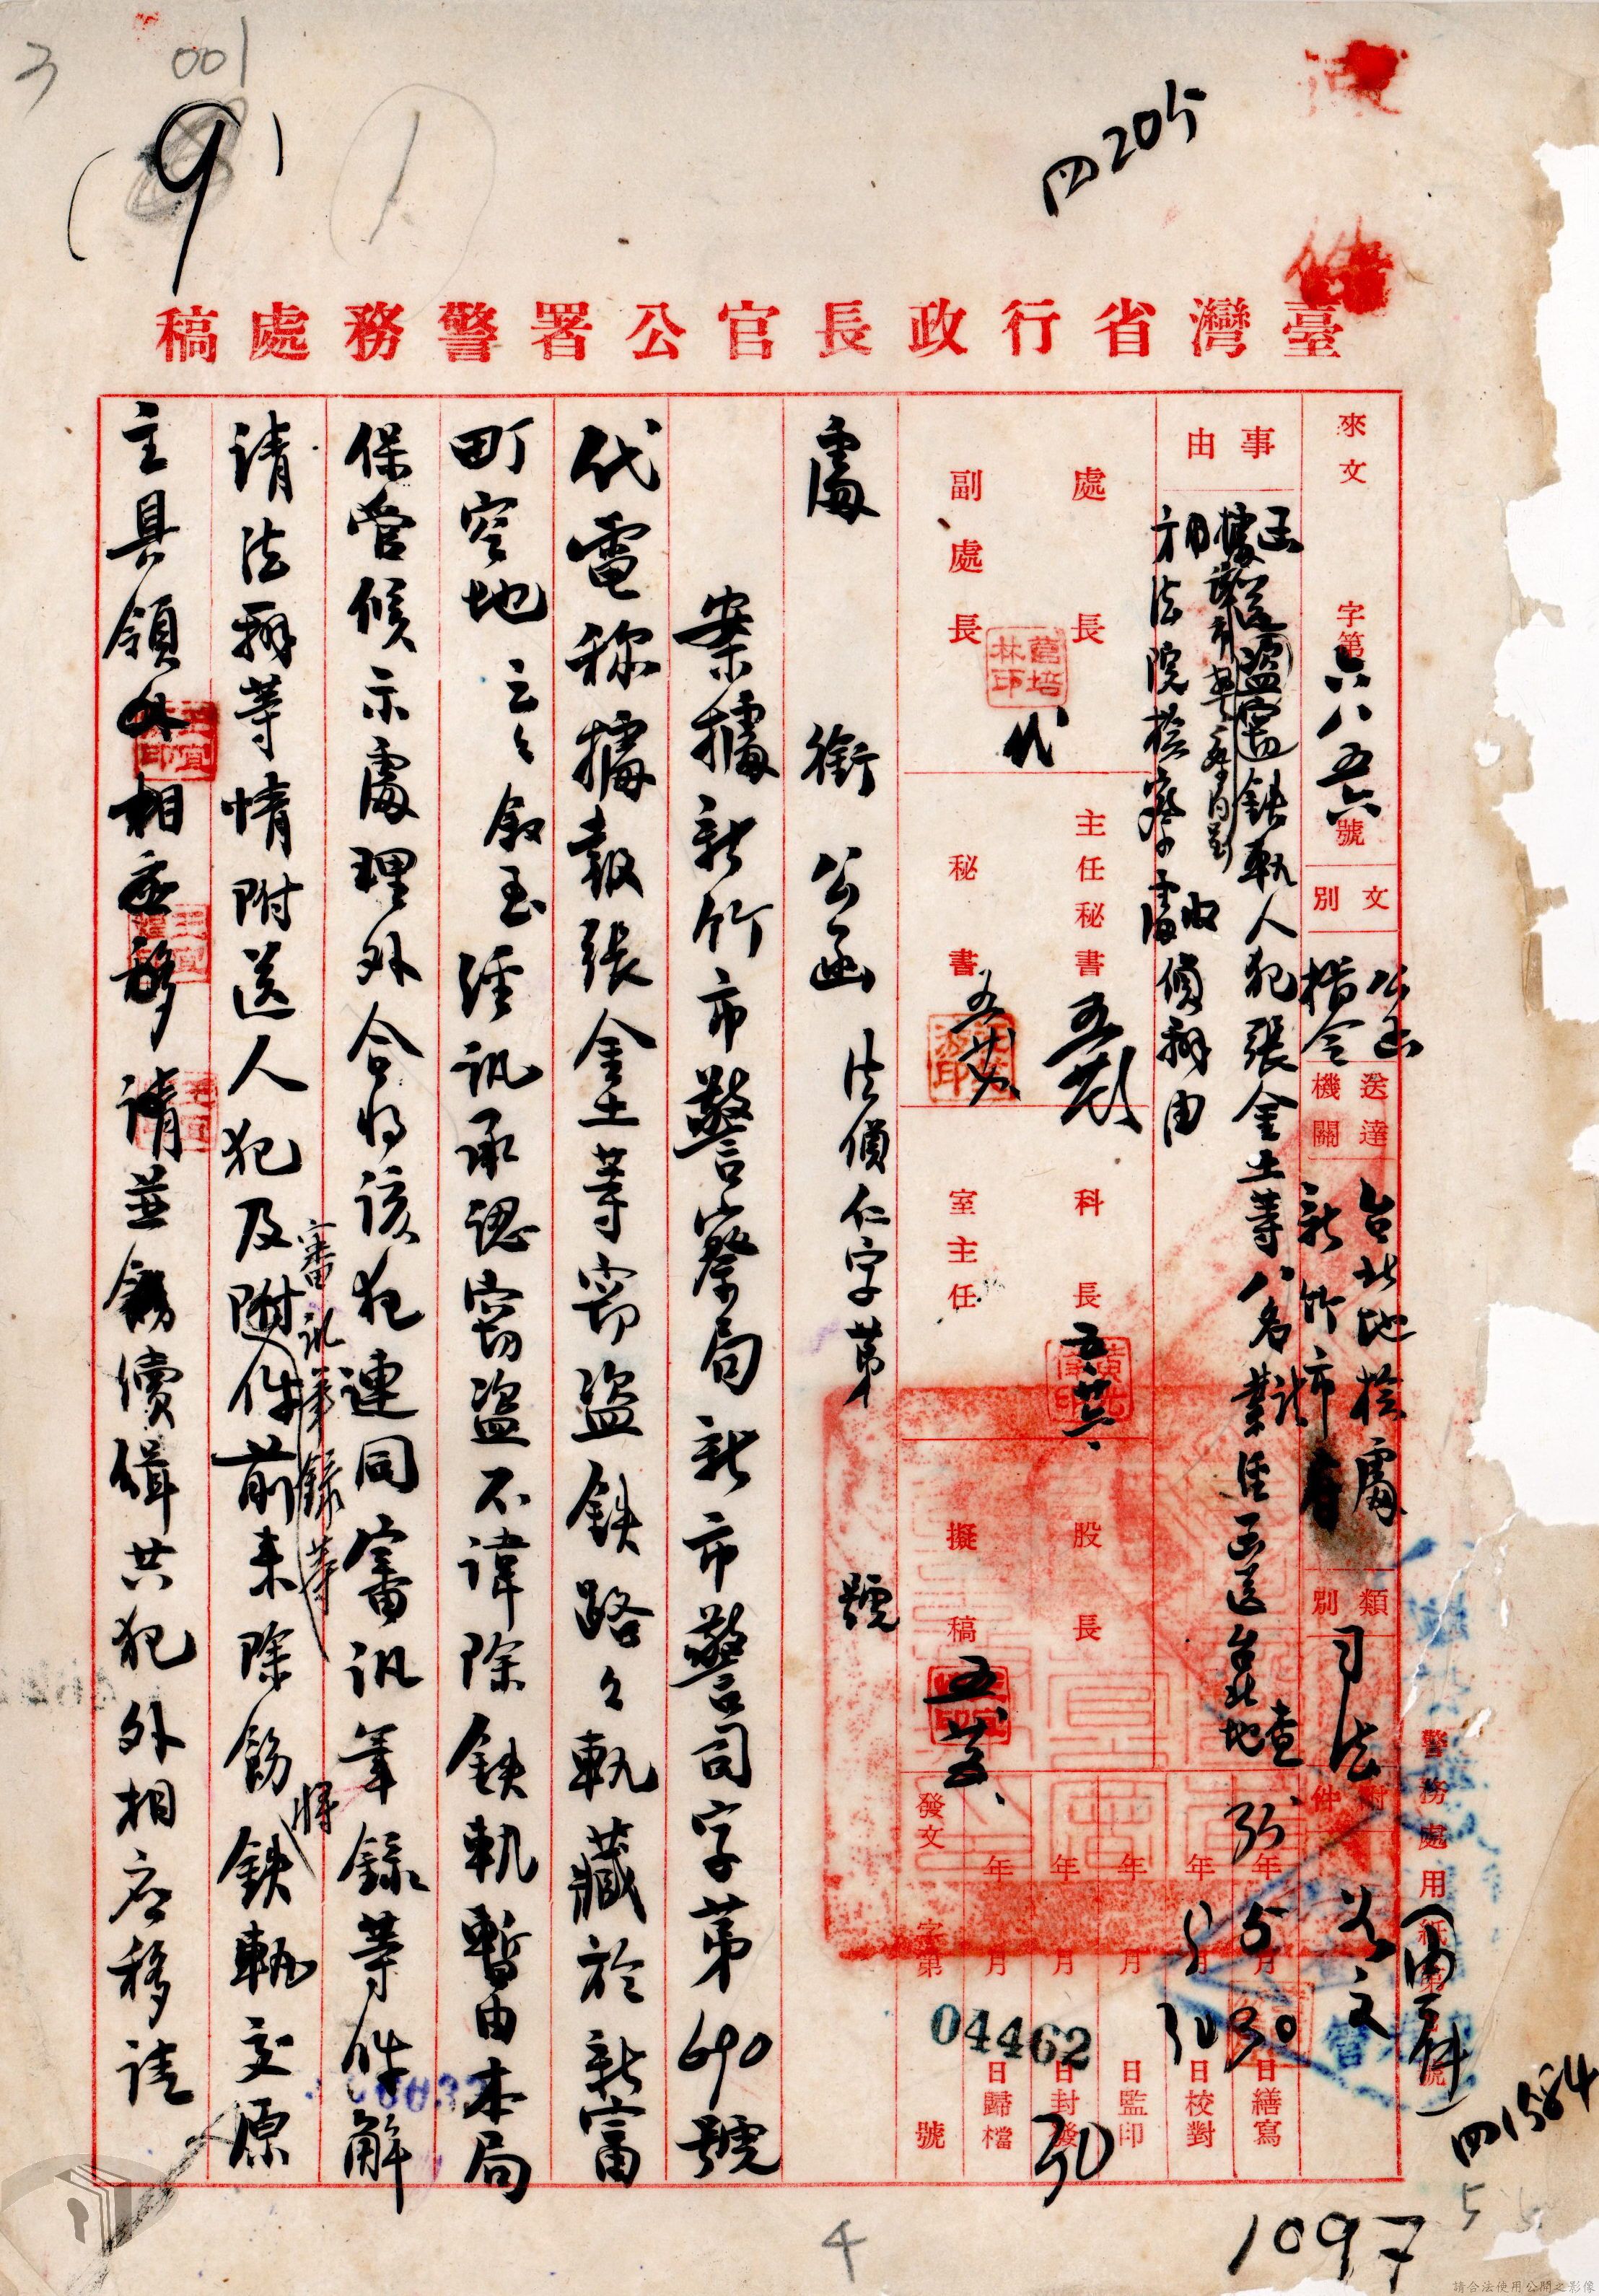 001
3
9
1
四205
臺灣省行政長官公署警務處稿
來文
字第六八五六號
文別
公函
指令
送達機關
台北地檢處
新竹市
類別
司法
附件
如文
事由
函送盜竊鉄軌人犯張金土等八名
業經函送台北地
方法院檢察處偵辦由
處長
副處長
代
主任秘書
秘書
科長
室主任
股長
擬稿
35年5月30日繕寫
年月30日校對
年月日監印
年月30日封發
年月日歸檔
發文字第號
04462
警務處用紙第號
處銜公函 法偵仁字第 號
案據新竹市警察局新市警司字第690號
代電称據報張金土等竊盜鉄路之軌藏於新富
町空地云々叙至經訊承認竊盜不諱除鉄軌暫由本局
保管候示處理外合將該犯連同審訊筆錄等件解
請法辦等情附送人犯及附件前来除飭鉄軌交原
審訊筆錄等
將
主具領外相應移請並飭續緝共犯外相应移請
四1584
1097
5
4
請合法使用公開之影像